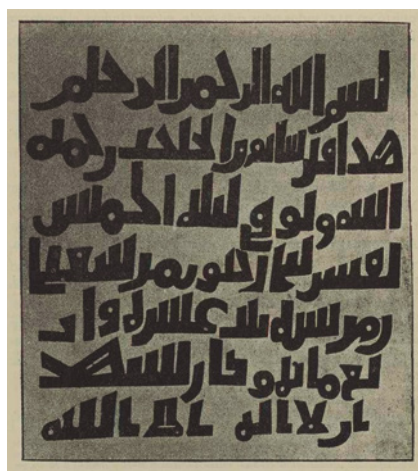 بسم الله الرحمن الرحيم
هذا قبر رحمه
الله وتوفي ليلة الخميس
لعشر خلون من شعبا
ن من سنة ست عشرة وأر
بع مائة وكان يشهد
أن لا إله إلا الله